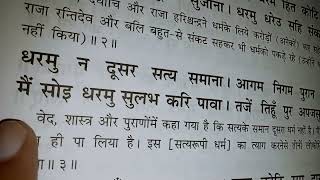 दधीचि और राजा हरिश्चन्द्रने धर्मके लिये करोड़ों (अनेकों)
राजा रन्तिदेव और बलि बहुत-से संकट सहकर भी धर्मको पकड़े रहे
नहीं किया)॥ २॥
धरमु न दूसर सत्य समाना। आगम निगम पुरान
मैं सोइ धरमु सुलभ करि पावा। तजें तिहूँ पुर अपजसु
वेद, शास्त्र और पुराणोंमें कहा गया है कि सत्यके समान दूसरा धर्म नहीं है।
ही पा लिया है। इस [सत्यरूपी धर्म] का त्याग करनेसे तीनों
॥ ३॥